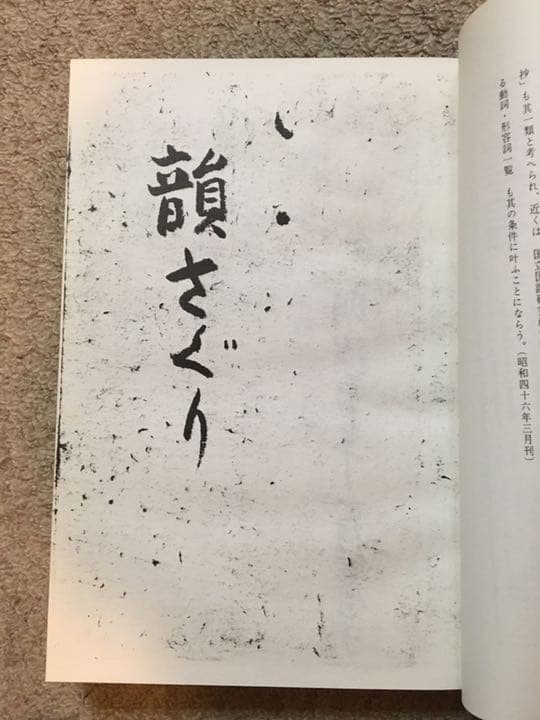 抄」も其一類と考へられ、近くは　国立国語研
る動詞・形容詞一覧　も其の条件に叶ふことにならう。（昭和四十六年三月刊）
韻さぐり